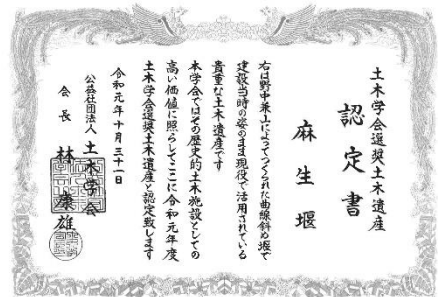 土木学会選奨土木遺産
認定書
麻生堰
右は野中兼山によってつくられた曲線斜め堰で
建設当時の姿のまま現役で活用されている
貴重な土木遺産です
本学会ではその歴史的土木施設としての
高い価値に照らしてここに令和元年度
土木学会選奨土木遺産と認定致します
令和元年十月二十一日
公益社団法人 土木学会
会長 林康雄